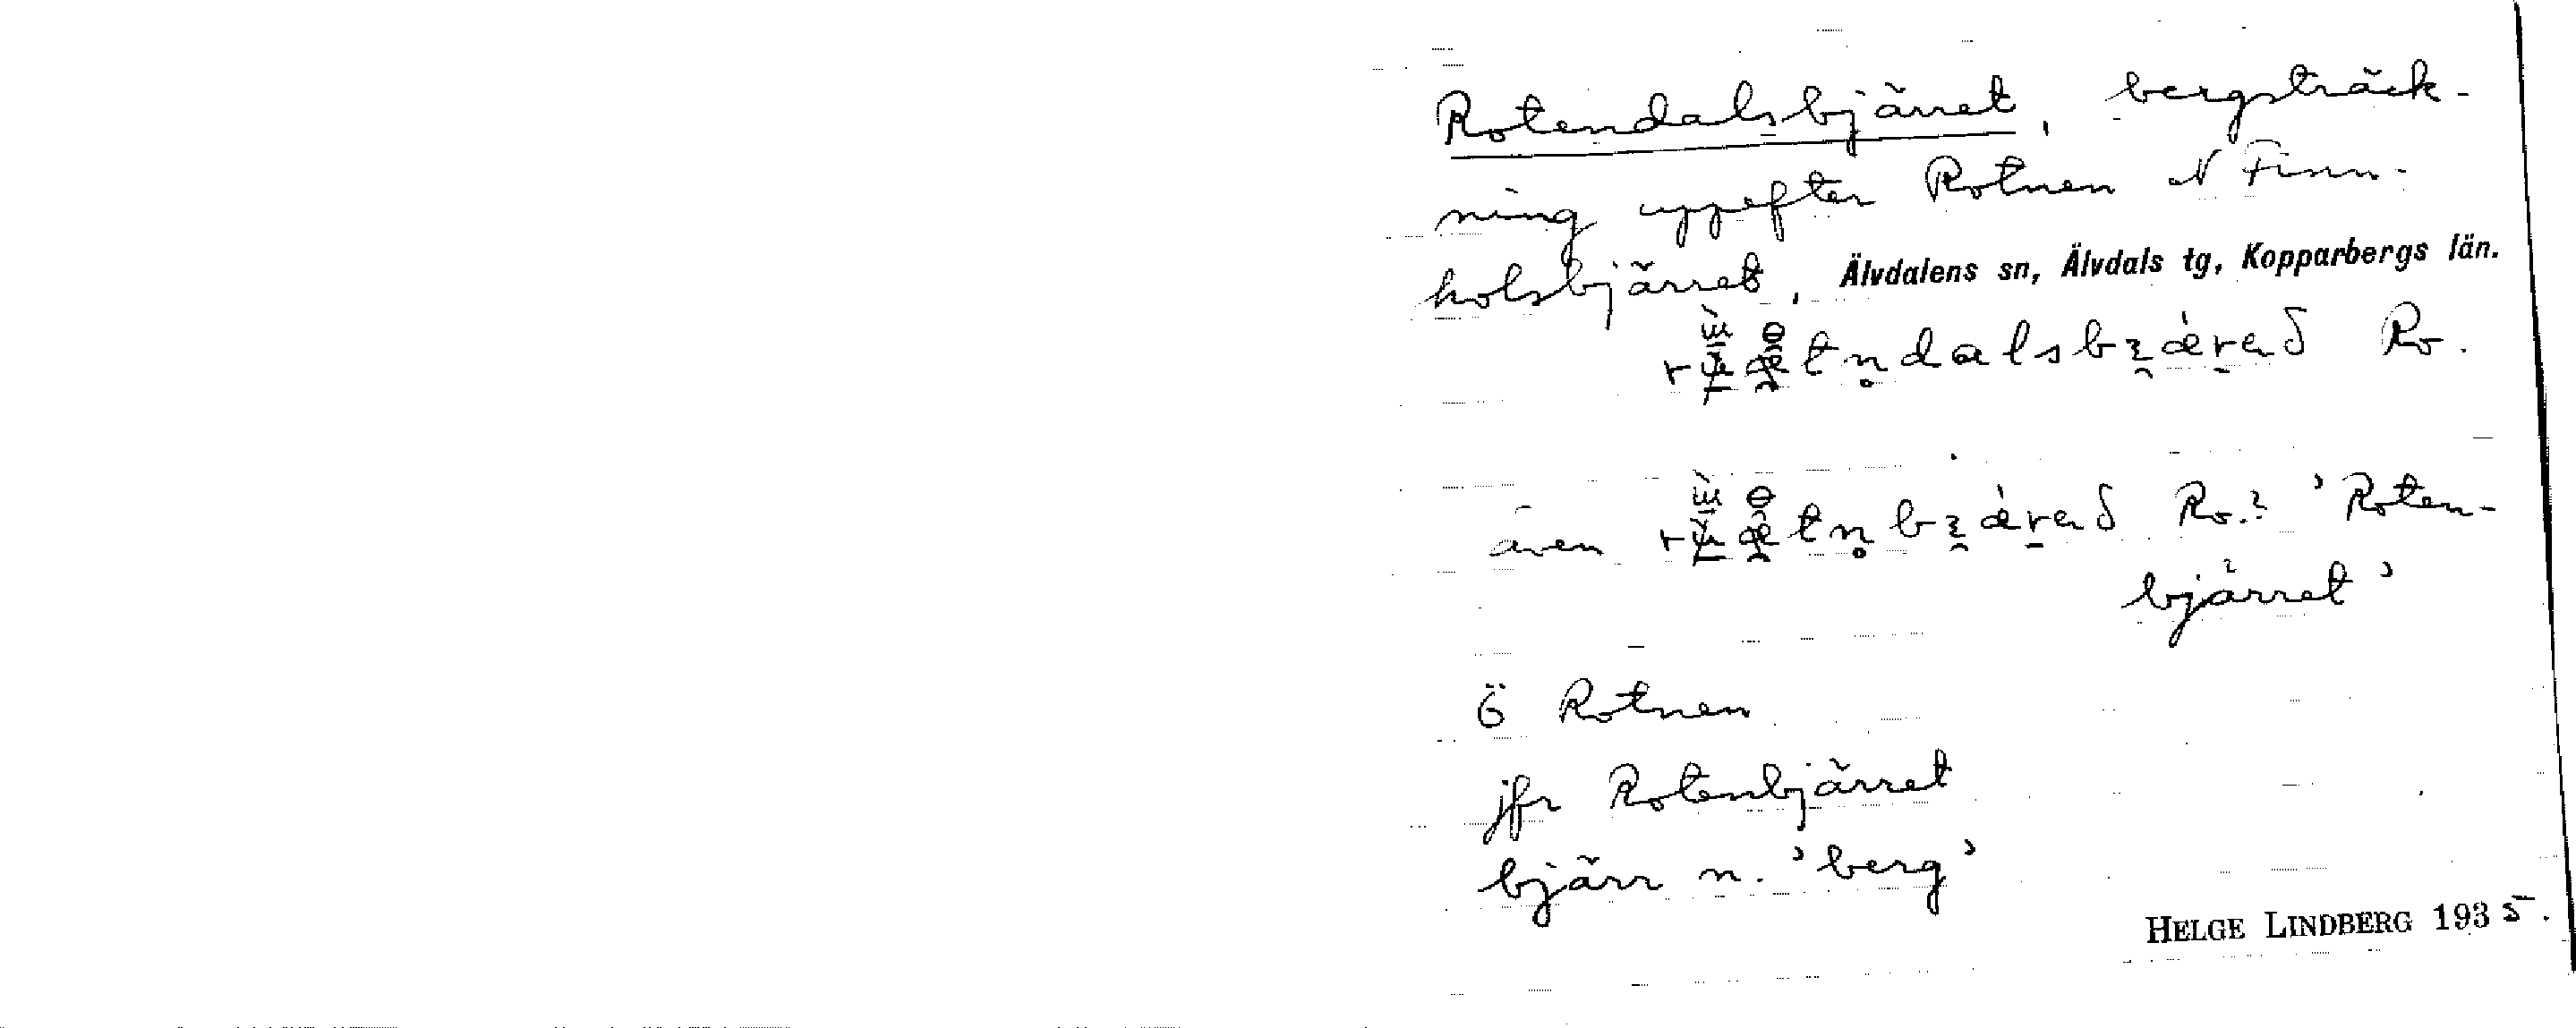 Rotendalsbjärret, bergsträck-
ning uppefter Rotnen N Finn-
holsbjärret, Älvdalens sn, Älvdals tg, Kopparbergs län.
Ro.
även Ro.? 'Roten-
bjärret'
Ö Rotnen
jfr Rotenbjärret
bjärr n. 'berg'
HELGE LINDBERG 1935.